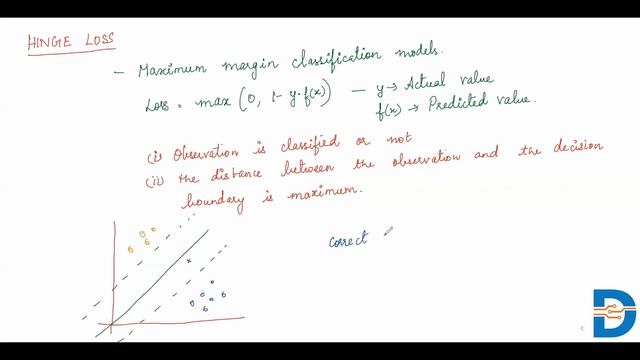 HINGE LOSS
- Maximum margin classification models.
Loss = max (0, 1 - y.f(x)) — y → Actual value
f(x) → Predicted value.
(i) Observation is classified or not
(ii) the distance between the observation and the decision
boundary is maximum.
correct